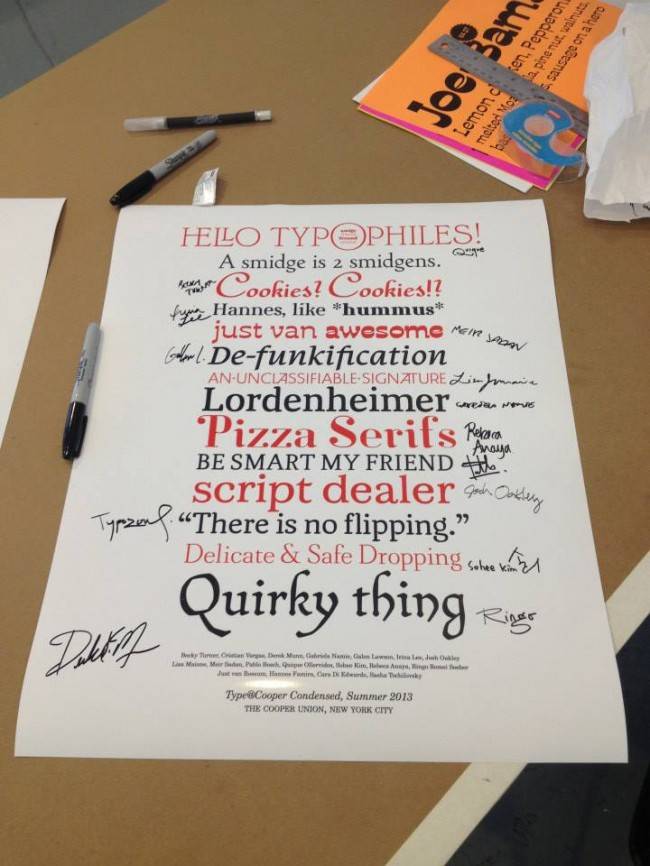 Joe
Bam
Lemon
ken, Pepperoni
melted Moz
la, pine nut, walnuts,
sausage on a hero
Sharpie
HELLO TYPOPHILES!
Quique
A smidge is 2 smidgens.
Cookies? Cookies!?
Irina Lee
Hannes, like *hummus*
just van awesome
MEIR SADAN
Galen L.
De-funkification
AN·UNCLASSIFIABLE·SIGNATURE
Lordenheimer
GABRIELA NAMIE
Pizza Serifs
Rebeca Anaya
BE SMART MY FRIEND
script dealer
Josh Oakley
“There is no flipping.”
Delicate & Safe Dropping
Sohee Kim
Quirky thing
Ringo
Becky Turner, Cristian Vargas, Derek Munn, Gabriela Namie, Galen Lawson, Irina Lee, Josh Oakley
Lisa Maione, Meir Sadan, Pablo Bosch, Quique Ollervides, Sohee Kim, Rebeca Anaya, Ringo Romei
Just van Rossum, Hannes Famira, Cara Di Edwardo, Sasha Tochilovsky
Type@Cooper Condensed, Summer 2013
THE COOPER UNION, NEW YORK CITY